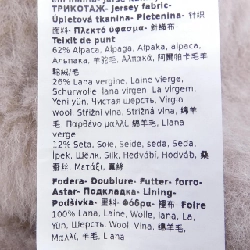 ТРИКОТАЖ- Jersey fabric-
Úpletová tkanina- Pletenina- 针织
Πλεκτό ύφασμα-
Teixit de punt
62% Alpaca, Alpaga, Alpaka, alpaca,
Альпака, 羊驼毛, Αλπακά,
26% Lana vergine, Laine vierge,
Schurwolle, lana virgen, La virgem,
Yeni yün, Чистая шерсть, Virgin
wool, Střižní vlna, Strižná vlna, 绵羊
毛, Παρθένο μαλλί, 绵羊毛, Llana
verge
12% Seta, Soie, Seide, seda, Seda,
İpek, Шелк, Silk, Hedvábí, Hodváb, 桑
蚕丝, Μετάξι,
Fodera- Doublure- Futter- forro-
Astar- Подкладка- Lining-
Podšívka- 里料- Φόδρα- Folre
100% Lana, Laine, Wolle, lana, Lã,
Yün, Шерсть, Wool, Vlna, 绵羊毛,
Μαλλί, 羊毛, Llana